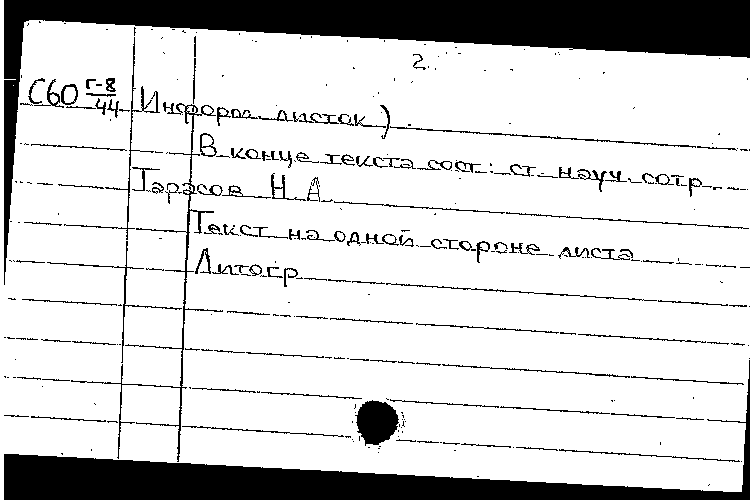 2.
С60 Г-8/44 Информ. листок).
В конце текста сост: ст. науч. сотр.
Тарасов Н. А.
Текст на одной стороне листа
Литогр